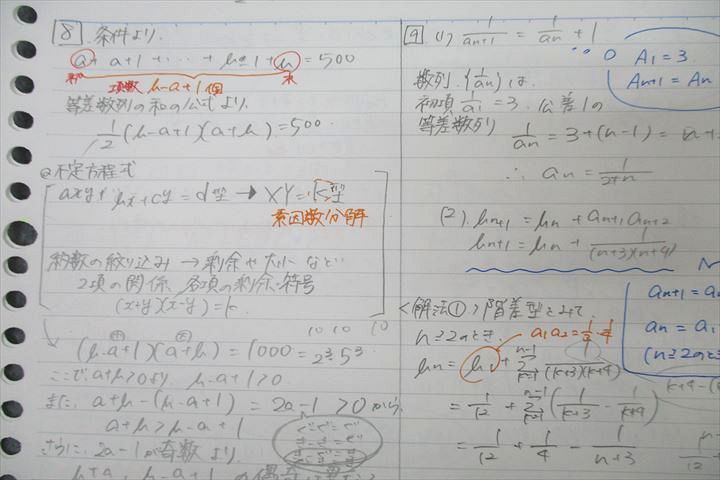 8 条件より、
a + a+1 + ‥‥ + b-1 + b = 500
初 項数 b-a+1個 末
等差数列の和の公式より、
1/2 (b-a+1)(a+b) = 500
@不定方程式
axy + bx + cy = d型 → XY = k型
素因数分解
約数の絞り込み → 剰余や大小など
2項の関係 各項の剰余・符号
(x+y)(x-y)=k
(b-a+1)(a+b) = 1000 = 2³・5³
ここで、a+b>0より b-a+1>0
また、a+b-(b-a+1) = 2a-1 > 0 から
a+b > b-a+1
さらに、2a-1が奇数より
9 (1) 1/an+1 = 1/an + 1
数列 {1/an} は
初項 1/a1 = 3、公差1の
等差数列
1/an = 3+(n-1) = n+
∴ an = 1/2+n
(2) bn+1 = bn + an+1 an+2
bn+1 = bn + 1/(n+3)(n+4)
<解法①> 階差型とみて、
n≧2のとき、 a1a2 = 1/3・1/4
bn = b1 + Σ[k=1, n-1] 1/(k+3)(k+4)
= 1/12 + Σ[k=1, n-1] (1/k+3 - 1/k+4)
= 1/12 + 1/4 - 1/n+3
A1 = 3
An+1 = An
an+1 = an
an = a1
(n≧2のと